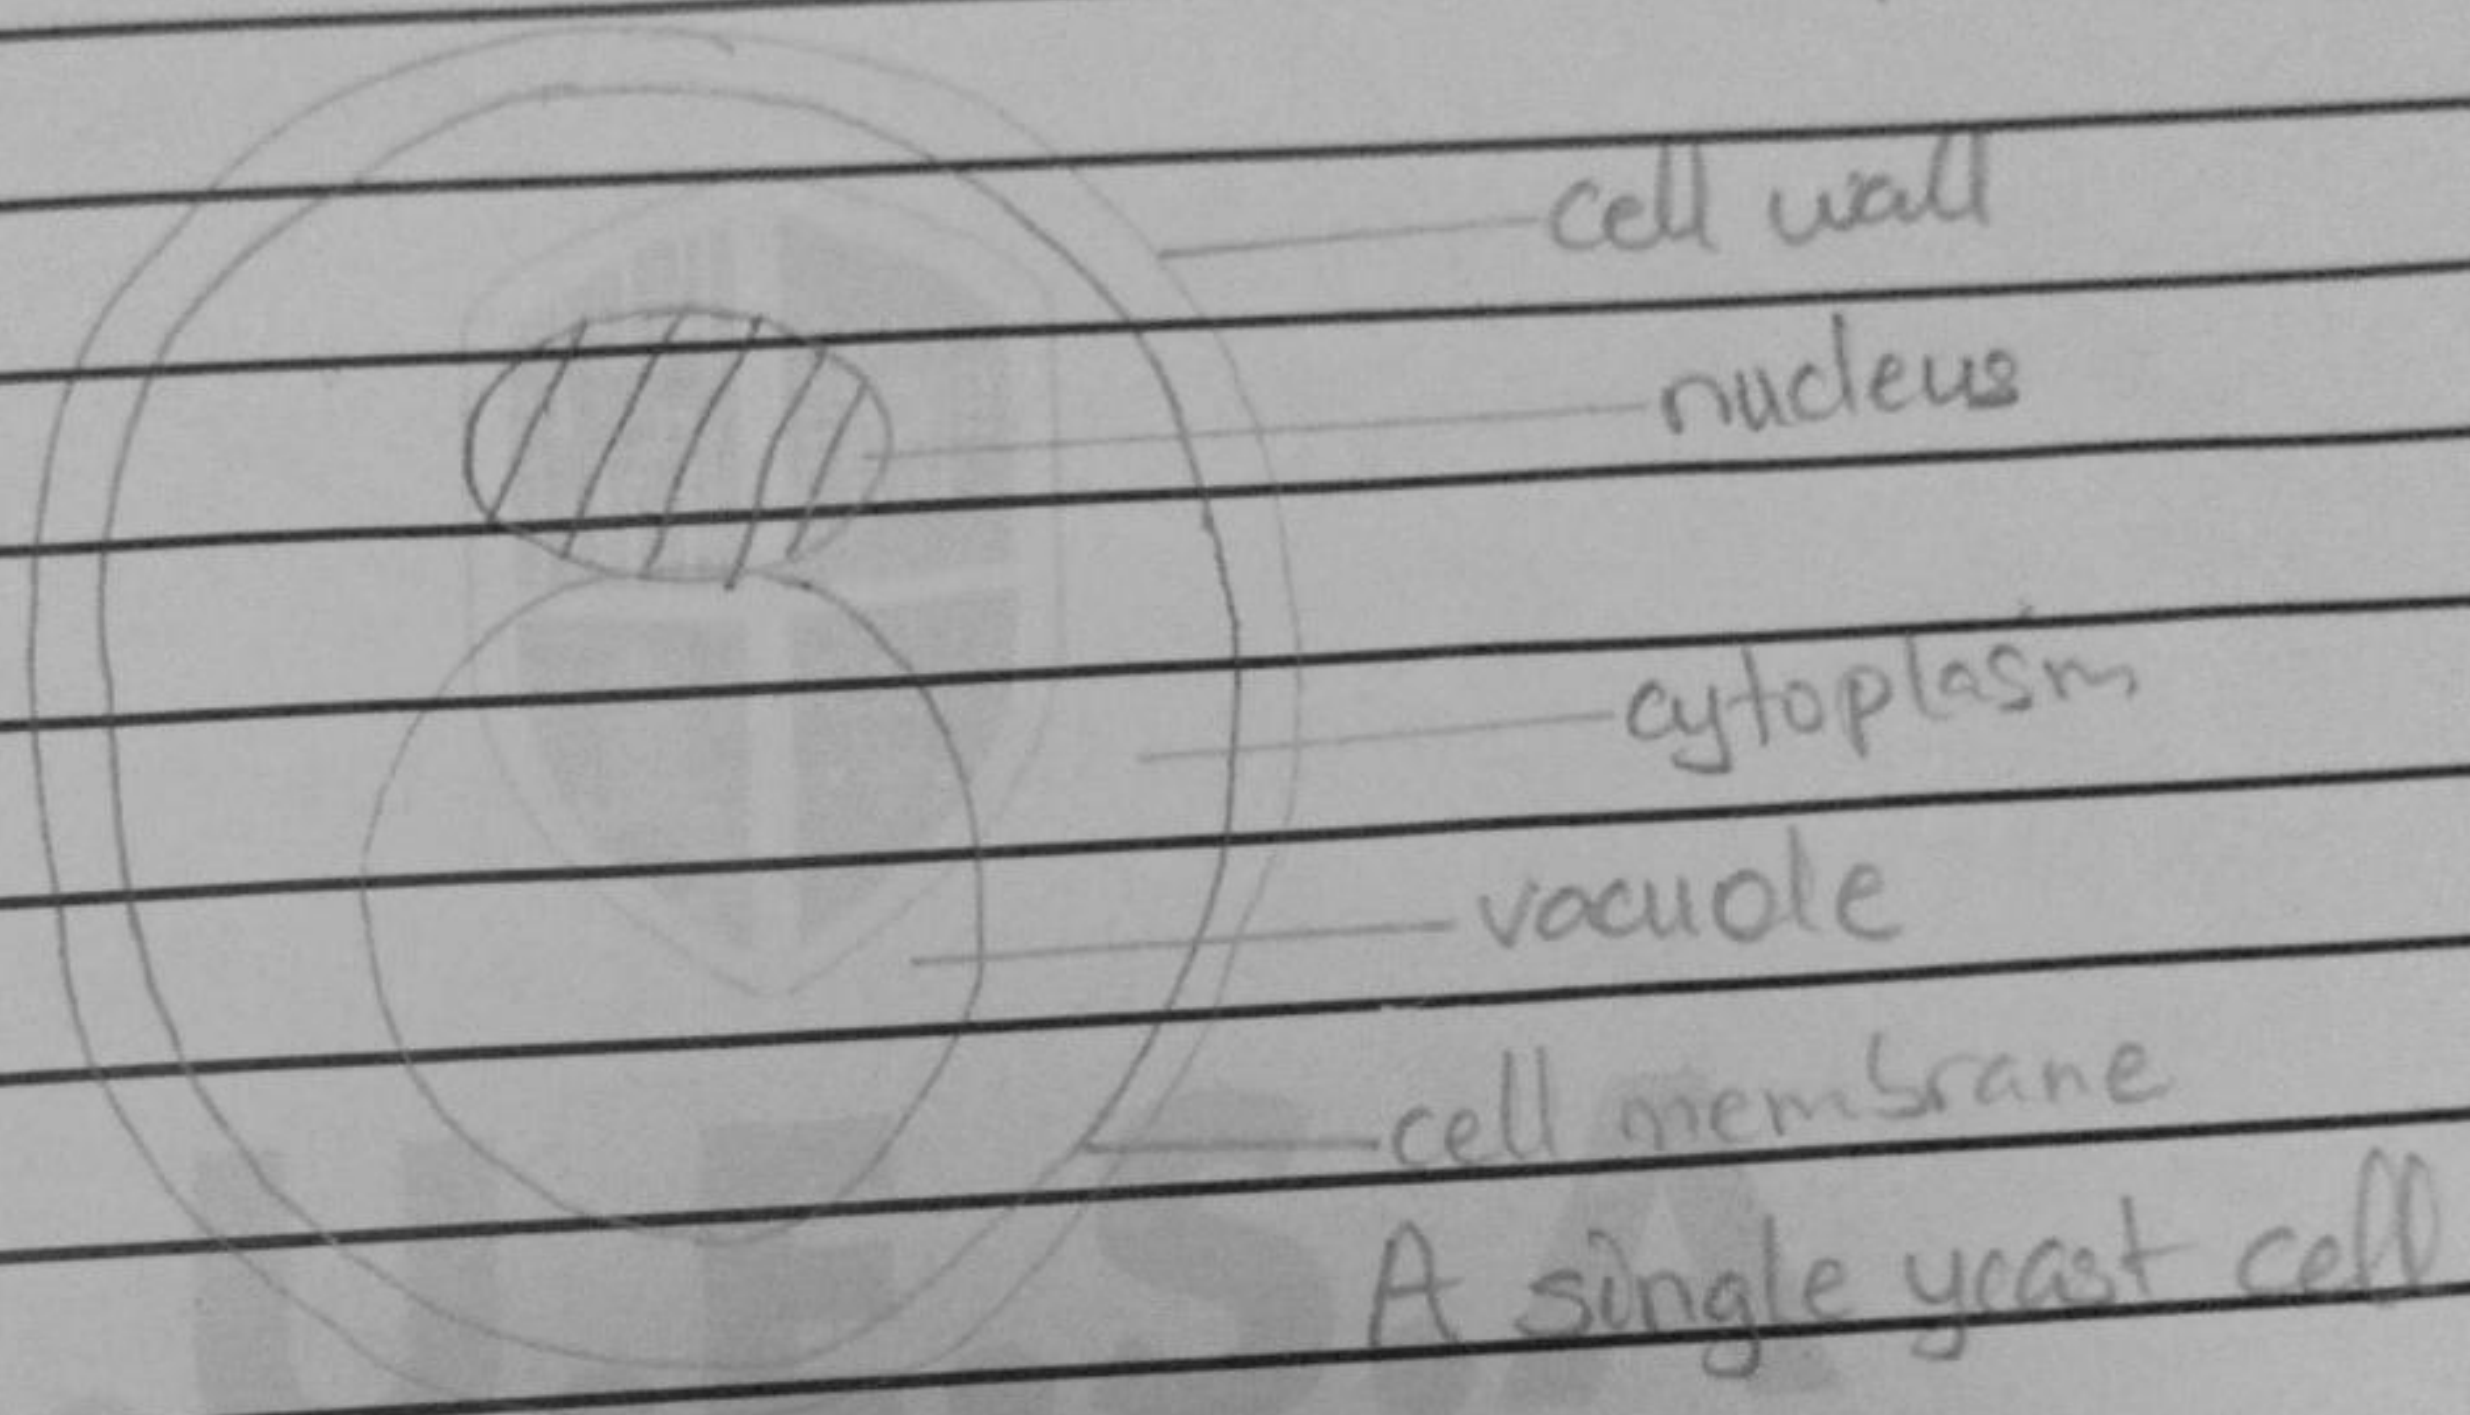 cell wall
nucleus
cytoplasm
vacuole
cell membrane
A single yeast cell